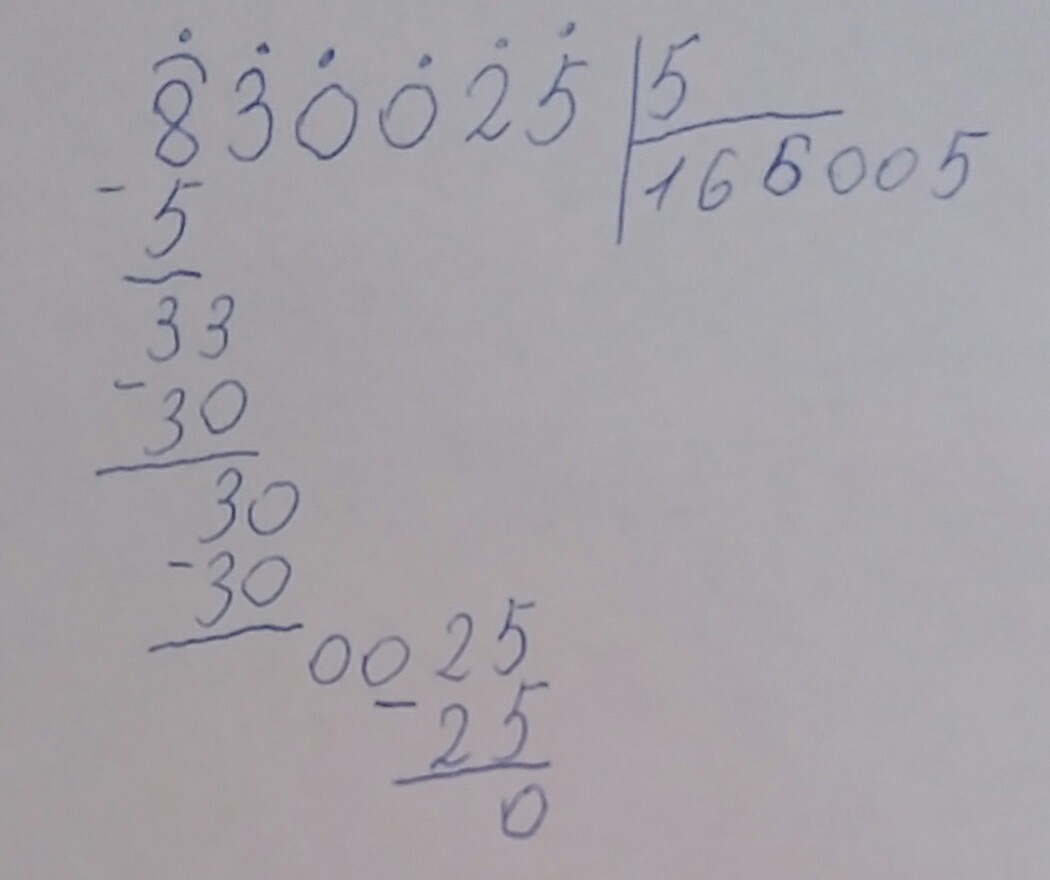 830025 5
166005
- 5
33
- 30
30
- 30
0025
- 25
0